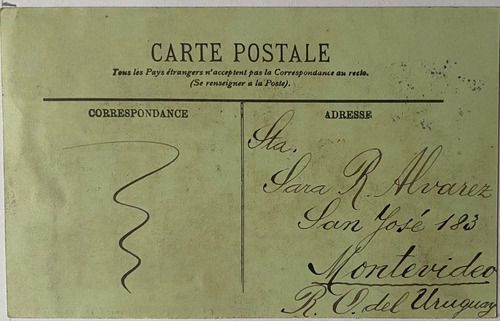 CARTE POSTALE
Tous les Pays étrangers n'acceptent pas la Correspondance au recto.
(Se renseigner à la Poste).
CORRESPONDANCE
ADRESSE
Sta.
Sara R. Alvarez
San José 183
Montevideo
R. O. del Uruguay